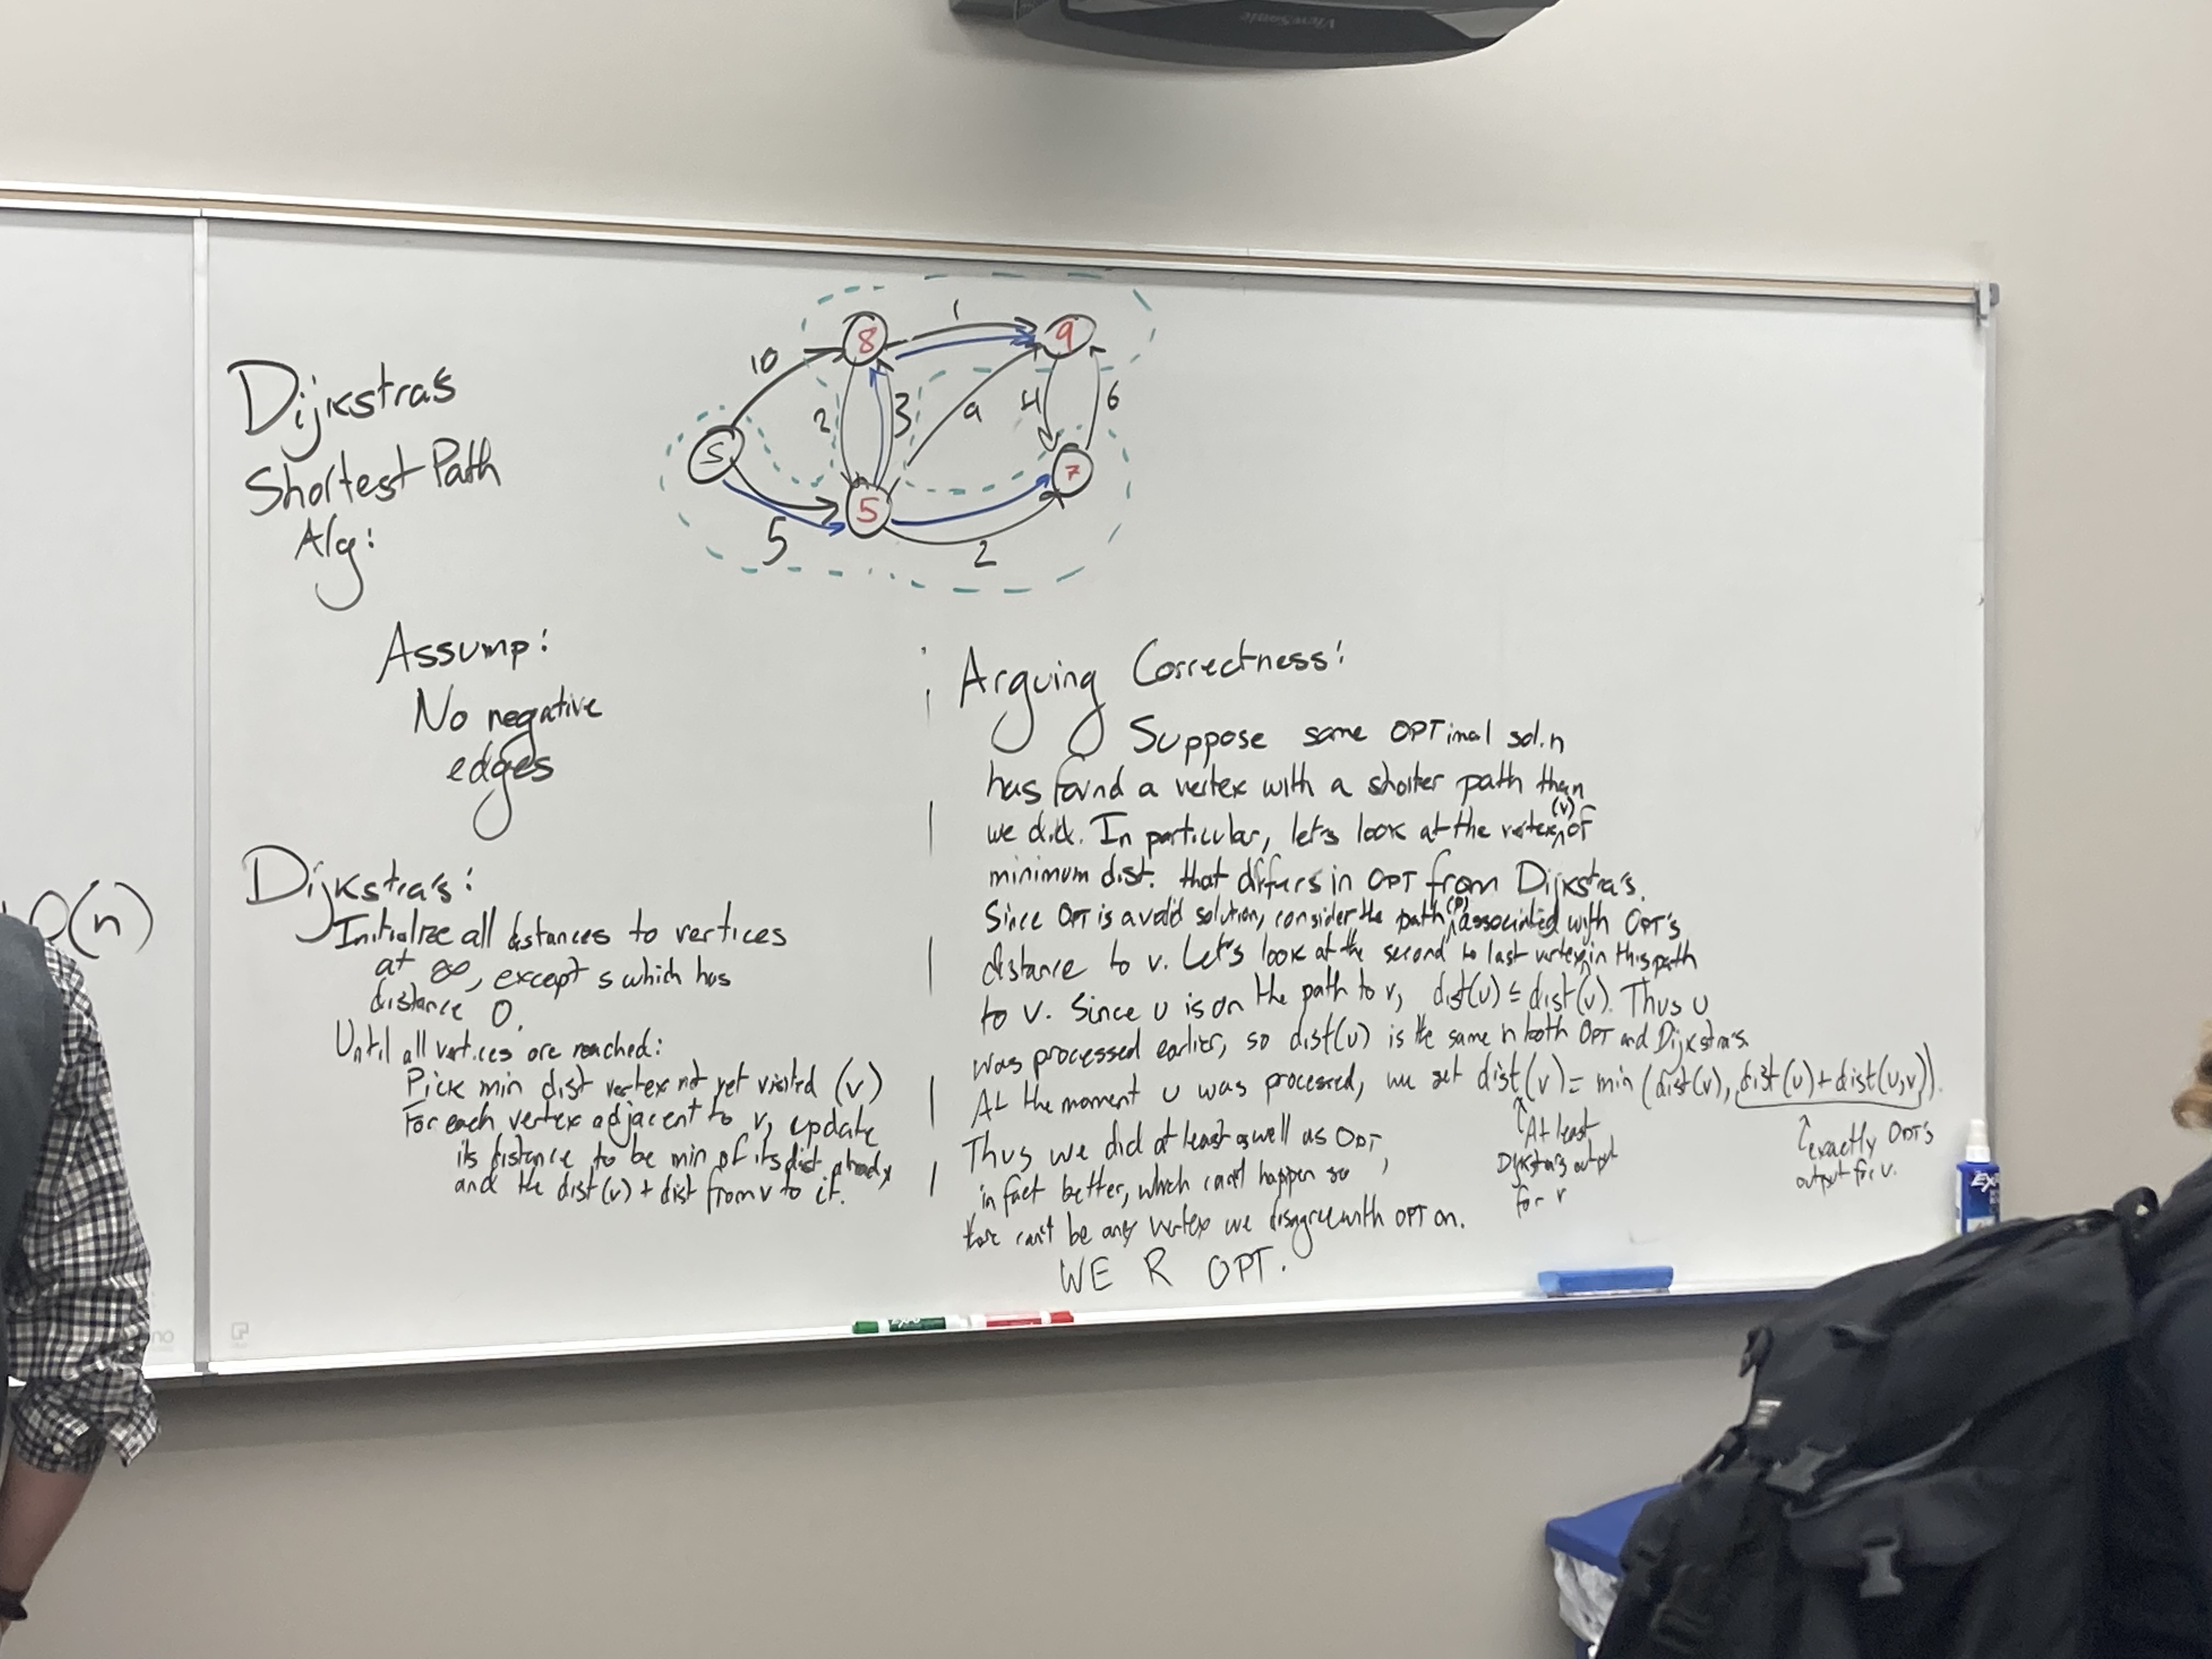 ViewSonic
Dijkstras
Shortest Path
Alg:
10
8
1
9
2
3
9
4
6
S
5
5
7
2
Assump:
No negative
edges
Dijkstra's:
Initialize all distances to vertices
at ∞, except s which has
distance 0.
Until all vertices are reached:
Pick min dist vertex not yet visited (v)
For each vertex adjacent to v, update
its distance to be min of its dist already
and the dist(v) + dist from v to it.
O(n)
Arguing Correctness:
Suppose some OPTimal sol.n
has found a vertex with a shorter path than
we did. In particular, let's look at the vertex (v) of
minimum dist. that differs in OPT from Dijkstra's.
Since OPT is a valid solution, consider the path (P) associated with OPT's
distance to v. Let's look at the second to last vertex in this path
to v. Since u is on the path to v, dist(u) ≤ dist(v). Thus u
was processed earlier, so dist(u) is the same in both OPT and Dijkstra's.
At the moment u was processed, we set dist(v) = min (dist(v), dist(u) + dist(u,v)).
Thus we did at least as well as OPT,
in fact better, which can't happen so
there can't be any vertex we disagree with OPT on.
WE R OPT.
At least
Dijkstra's output
for v
exactly OPT's
output for v.
EXPO